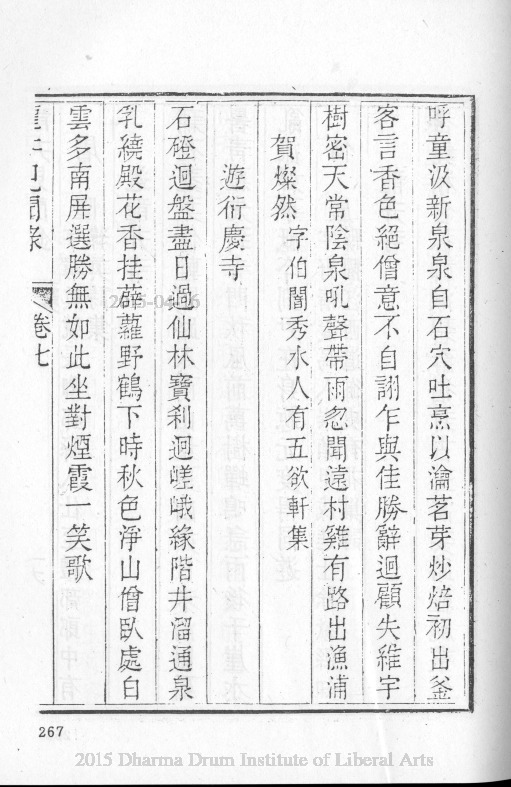 呼童汲新泉泉自石穴吐烹以瀹茗芽炒焙初出釜
客言香色絕僧意不自詡乍與佳勝辭迴顧失維宇
樹密天常陰泉吼聲帶雨忽聞遠村雞有路出漁浦
賀燦然字伯闇秀水人有五欲軒集
遊衍慶寺
石磴迴盤盡日過仙林寶剎迥嵯峨緣階井溜通泉
乳繞殿花香挂薜蘿野鶴下時秋色淨山僧臥處白
雲多南屏選勝無如此坐對煙霞一笑歌
龍井見聞錄 卷七
267
2015 Dharma Drum Institute of Liberal Arts